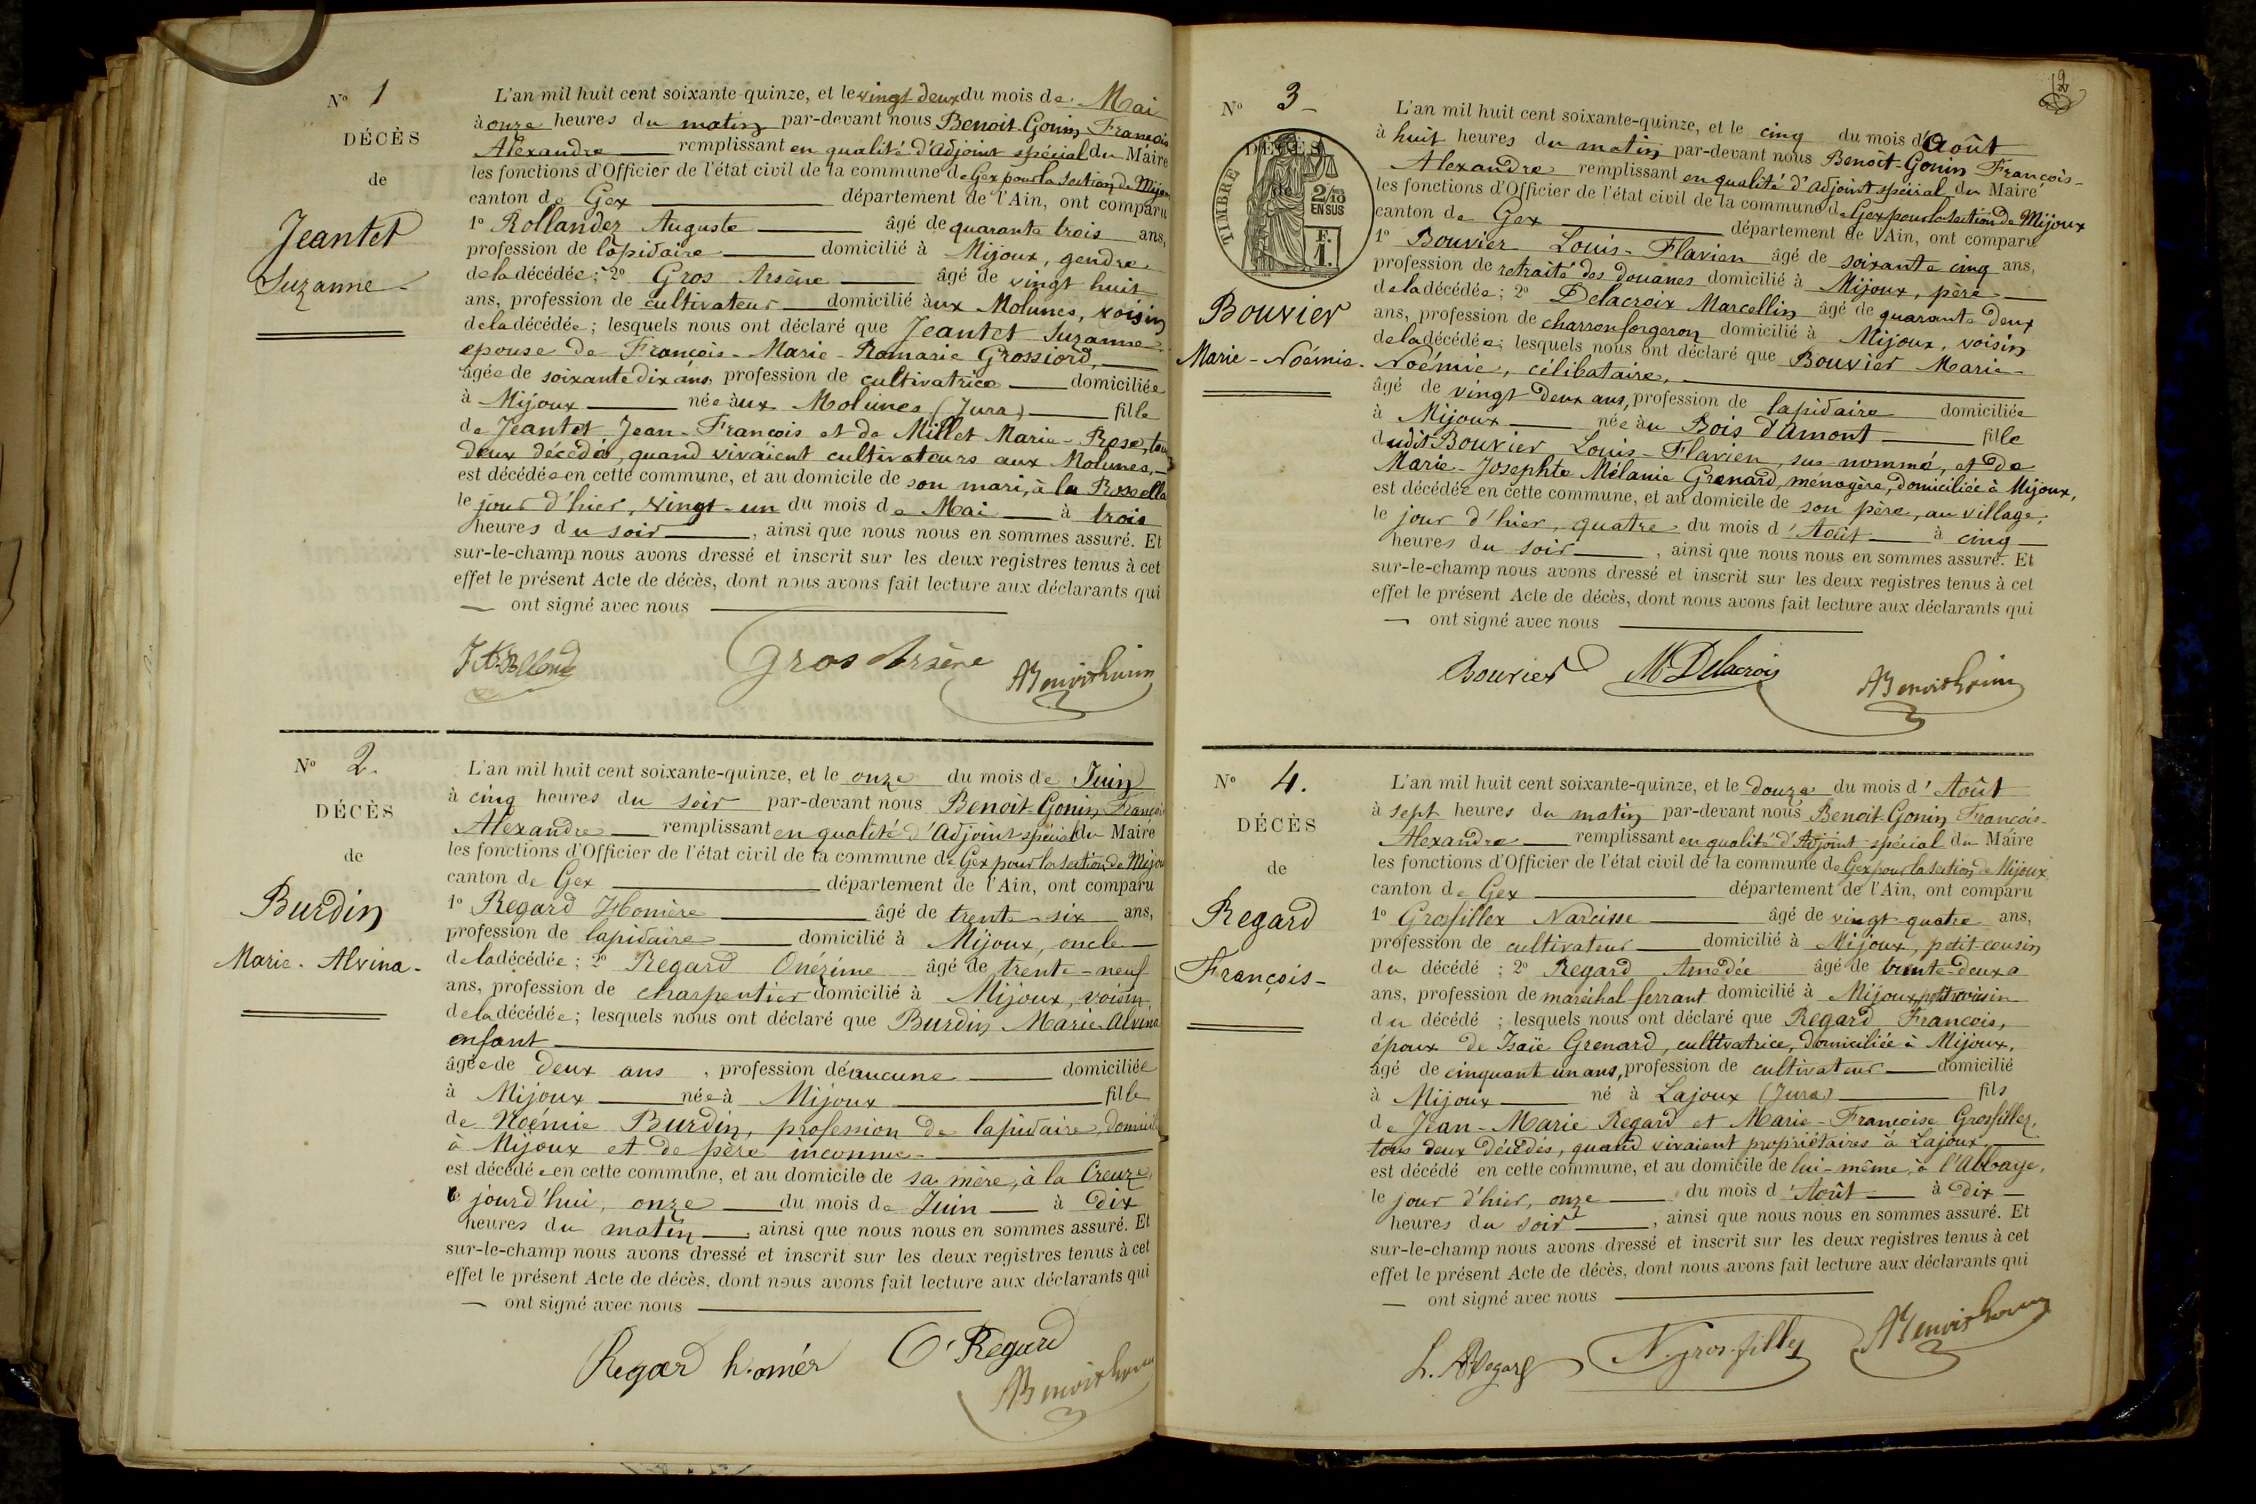 Nº 1
DÉCÈS
de
Jeantet
Suzanne
L'an mil huit cent soixante-quinze, et le vingt deux du mois de Mai
à onze heures du matin par-devant nous Benoit-Gonin François
Alexandre remplissant en qualité d'adjoint spécial du Maire
les fonctions d'Officier de l'état civil de la commune de Gex pour la section de Mijoux
canton de Gex département de l'Ain, ont comparu
1º Rollandez Auguste âgé de quarante trois ans,
profession de lapidaire domicilié à Mijoux, gendre
de la décédée; 2º Gros Arsène âgé de vingt huit
ans, profession de cultivateur domicilié aux Molunes, voisin
de la décédée; lesquels nous ont déclaré que Jeantet Suzanne
épouse de François-Marie-Romarie Grossiord,
âgée de soixante dix ans, profession de cultivatrice domiciliée
à Mijoux née aux Molunes (Jura) fille
de Jeantet Jean-François et de Millet Marie-Rose, tous
deux décédés, quand vivaient cultivateurs aux Molunes,
est décédée en cette commune, et au domicile de son mari, à la
le jour d'hier, vingt-un du mois de Mai à trois
heures du soir, ainsi que nous nous en sommes assuré. Et
sur-le-champ nous avons dressé et inscrit sur les deux registres tenus à cet
effet le présent Acte de décès, dont nous avons fait lecture aux déclarants qui
ont signé avec nous
Gros Arsène ABenoitGonin
Nº 2.
DÉCÈS
de
Burdin
Marie-Alvina-
L'an mil huit cent soixante-quinze, et le onze du mois de Juin
à cinq heures du soir par-devant nous Benoit-Gonin François
Alexandre remplissant en qualité d'Adjoint spécial du Maire
les fonctions d'Officier de l'état civil de la commune de Gex pour la section de Mijoux
canton de Gex département de l'Ain, ont comparu
1º Regard Homère âgé de trente-six ans,
profession de lapidaire domicilié à Mijoux, oncle
de la décédée; 2º Regard Onézime âgé de trente-neuf
ans, profession de charpentier domicilié à Mijoux, voisin,
de la décédée; lesquels nous ont déclaré que Burdin Marie Alvina
enfant
âgée de deux ans, profession de aucune domiciliée
à Mijoux née à Mijoux fille
de Noémie Burdin, profession de lapidaire, domiciliée
à Mijoux et de père inconnu-
est décédée en cette commune, et au domicile de sa mère, à la Creuze,
le jourd'hui, onze du mois de Juin à dix
heures du matin, ainsi que nous nous en sommes assuré. Et
sur-le-champ nous avons dressé et inscrit sur les deux registres tenus à cet
effet le présent Acte de décès, dont nous avons fait lecture aux déclarants qui
ont signé avec nous
Regard homér O. Regard
ABenoitGonin
2
Nº 3
DÉCÈS
TIMBRE
2/10
EN SUS
F.
1.
Bouvier
Marie-Noémie.
L'an mil huit cent soixante-quinze, et le cinq du mois d'Août
à huit heures du matin par-devant nous Benoît-Gonin François-
Alexandre remplissant en qualité d'adjoint spécial du Maire
les fonctions d'Officier de l'état civil de la commune de Gex pour la section de Mijoux
canton de Gex département de l'Ain, ont comparu
1º Bouvier Louis-Flavien âgé de soixante cinq ans,
profession de retraité des douanes domicilié à Mijoux, père
de la décédée; 2º Delacroix Marcellin âgé de quarante deux
ans, profession de charron forgeron domicilié à Mijoux, voisin
de la décédée; lesquels nous ont déclaré que Bouvier Marie-
Noémie, célibataire,
âgé de vingt deux ans, profession de lapidaire domiciliée
à Mijoux née au Bois d'Amont fille
dudit Bouvier Louis-Flavien, sus-nommé, et de
Marie-Josephte Mélanie Grenard, ménagère, domiciliée à Mijoux,
est décédée en cette commune, et au domicile de son père, au village,
le jour d'hier, quatre du mois d'Août à cinq
heures du soir, ainsi que nous nous en sommes assuré. Et
sur-le-champ nous avons dressé et inscrit sur les deux registres tenus à cet
effet le présent Acte de décès, dont nous avons fait lecture aux déclarants qui
ont signé avec nous
Bouvier M Delacroix ABenoitGonin
Nº 4.
DÉCÈS
de
Regard
François-
L'an mil huit cent soixante-quinze, et le douze du mois d'Août
à sept heures du matin par-devant nous Benoit-Gonin François-
Alexandre remplissant en qualité d'Adjoint-spécial du Maire
les fonctions d'Officier de l'état civil de la commune de Gex pour la section de Mijoux
canton de Gex département de l'Ain, ont comparu
1º Grosfillex Narcisse âgé de vingt-quatre ans,
profession de cultivateur domicilié à Mijoux, petit-cousin
du décédé; 2º Regard Amédée âgé de trente-deux
ans, profession de maréchal ferrant domicilié à Mijoux, voisin
du décédé; lesquels nous ont déclaré que Regard François,
époux de Isaïe Grenard, cultivatrice, domiciliée à Mijoux,
âgé de cinquant un ans, profession de cultivateur domicilié
à Mijoux né à Lajoux (Jura) fils
de Jean-Marie Regard et Marie-Françoise Grosfillez,
tous deux décédés, quand vivaient propriétaires à Lajoux,
est décédé en cette commune, et au domicile de lui-même, à l'Abbaye,
le jour d'hier, onze du mois d'Août à dix
heures du soir, ainsi que nous nous en sommes assuré. Et
sur-le-champ nous avons dressé et inscrit sur les deux registres tenus à cet
effet le présent Acte de décès, dont nous avons fait lecture aux déclarants qui
ont signé avec nous
Regard N. gros-filley ABenoitGonin